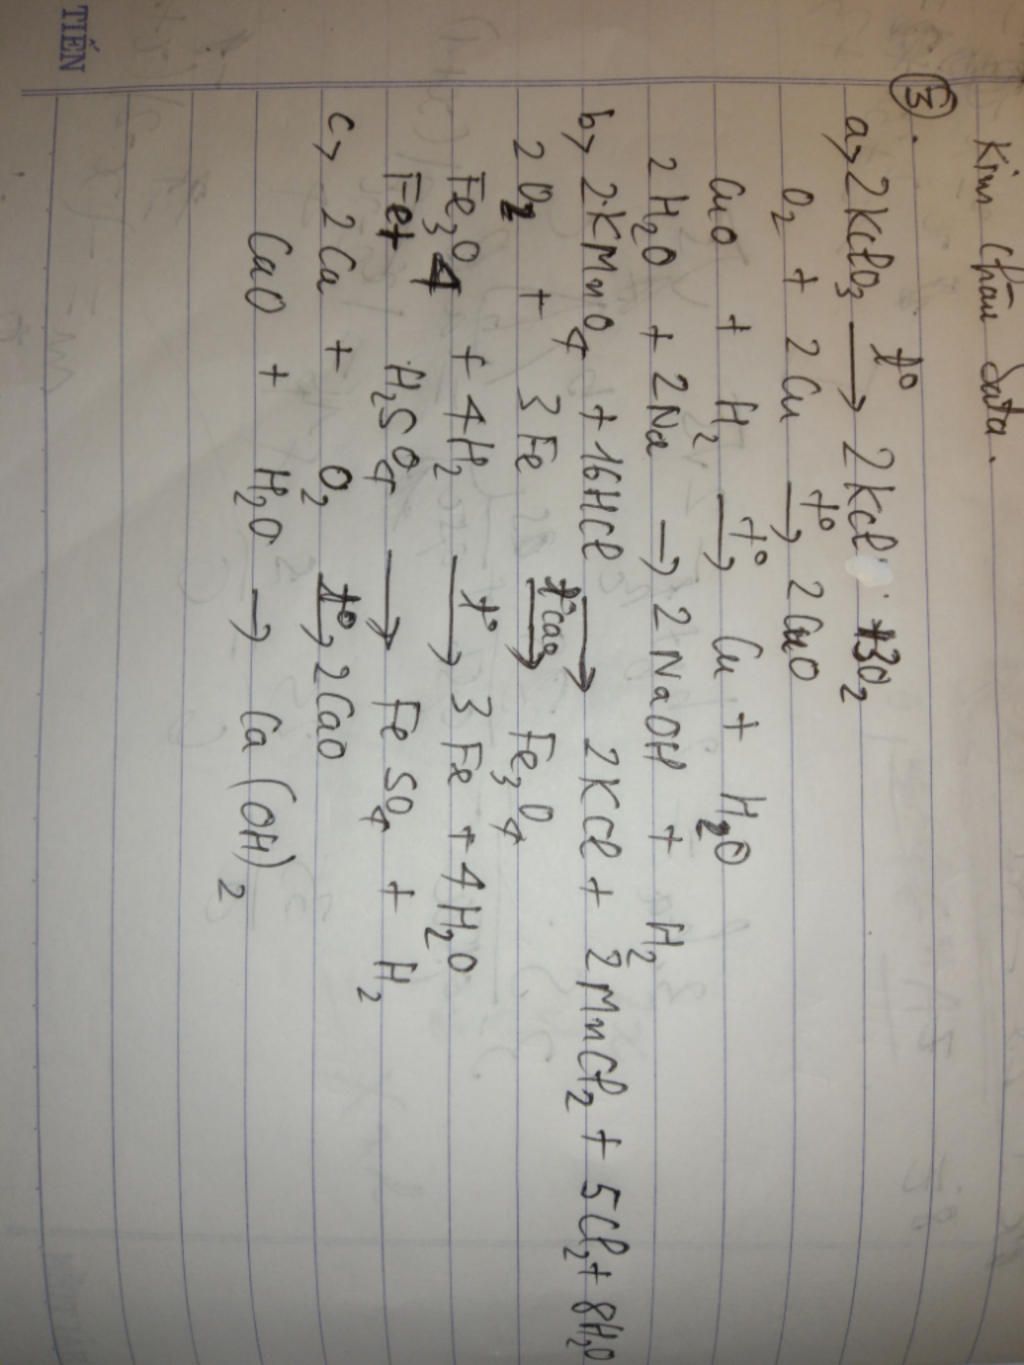 Kim Châu Sata.
③.
a, 2KClO₃ —t°→ 2KCl + 3O₂
O₂ + 2Cu —t°→ 2CuO
CuO + H₂ —t°→ Cu + H₂O
2H₂O + 2Na → 2NaOH + H₂
b, 2KMnO₄ + 16HCl → 2KCl + 2MnCl₂ + 5Cl₂ + 8H₂O
2O₂ + 3Fe —t°cao→ Fe₃O₄
Fe₃O₄ + 4H₂ —t°→ 3Fe + 4H₂O
Fe + H₂SO₄ → FeSO₄ + H₂
c, 2Ca + O₂ —t°→ 2CaO
CaO + H₂O → Ca(OH)₂
TIẾN